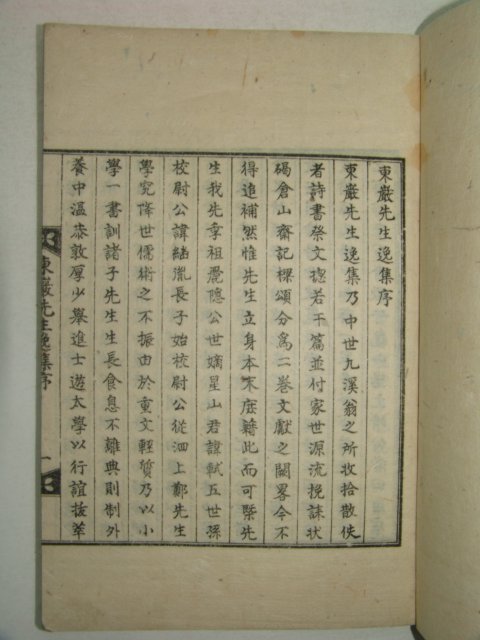 東巖先生逸集序
東巖先生逸集乃中世九溪翁之所收拾散佚
者詩書祭文總若干篇並付家世源流挽誄狀
碣倉山齋記樑頌分爲二卷文獻之闕畧今不
得追補然惟先生立身本末庶籍此而可槩先
生我先季祖麃隱公世嫡星山君諱軾五世孫
校尉公諱結胤長子始校尉公從泗上鄭先生
學究降世儒術之不振由於重文輕質乃以小
學一書訓諸子先生生長食息不離典則制外
養中溫恭敦厚少舉進士遊太學以行誼拔萃
東巖先生逸集序 一